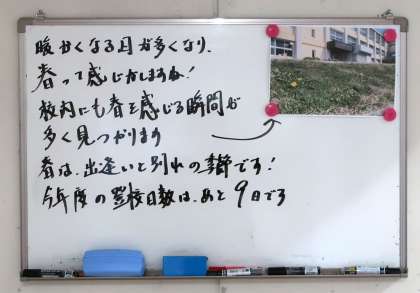 暖かくなる日が多くなり、
春って感じがしますね!
校内にも春を感じる瞬間が
多く見つかります
春は、出逢いと別れの季節です!
今年度の登校日数は、あと9日です